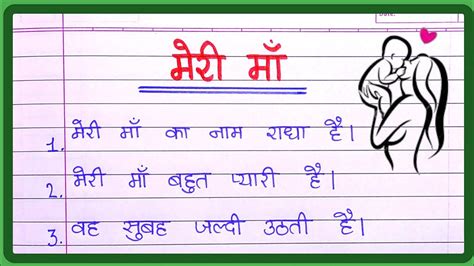 मेरी माँ
1. मेरी माँ का नाम राधा है।
2. मेरी माँ बहुत प्यारी है।
3. वह सुबह जल्दी उठती है।